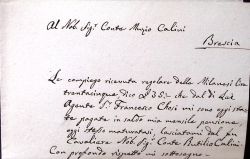 Al Nob. Sig.r Conte Muzio Calini
Brescia
Le compiego ricevuta regolare delle Milanesi Lire
trentacinque dico £ 35:- che dal di Lei
Agente S.r Francesco Chesi mi sono oggi state
pagate in saldo mia mensile pensione
oggi stesso maturatasi, lasciatami dal fu
Cavaliere Nob. Sig. Conte Rutilio Calini
Con profondo rispetto mi sottosegno